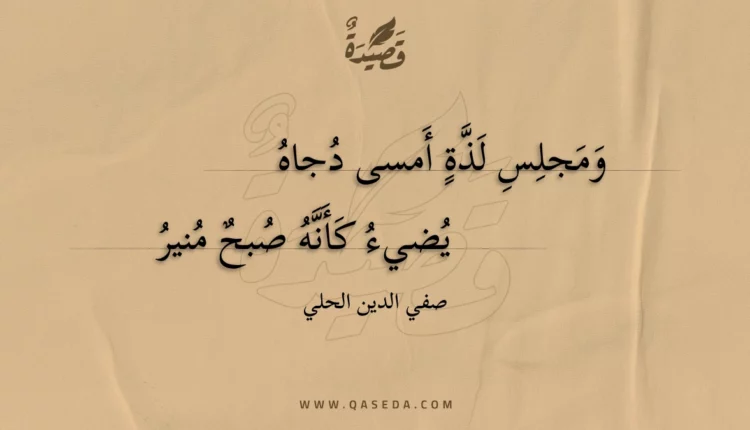 قَصِيدَةٌ
وَمَجلِسِ لَذَّةٍ أَمسى دُجاهُ
يُضيءُ كَأَنَّهُ صُبحٌ مُنيرُ
صفي الدين الحلي
WWW.QASEDA.COM